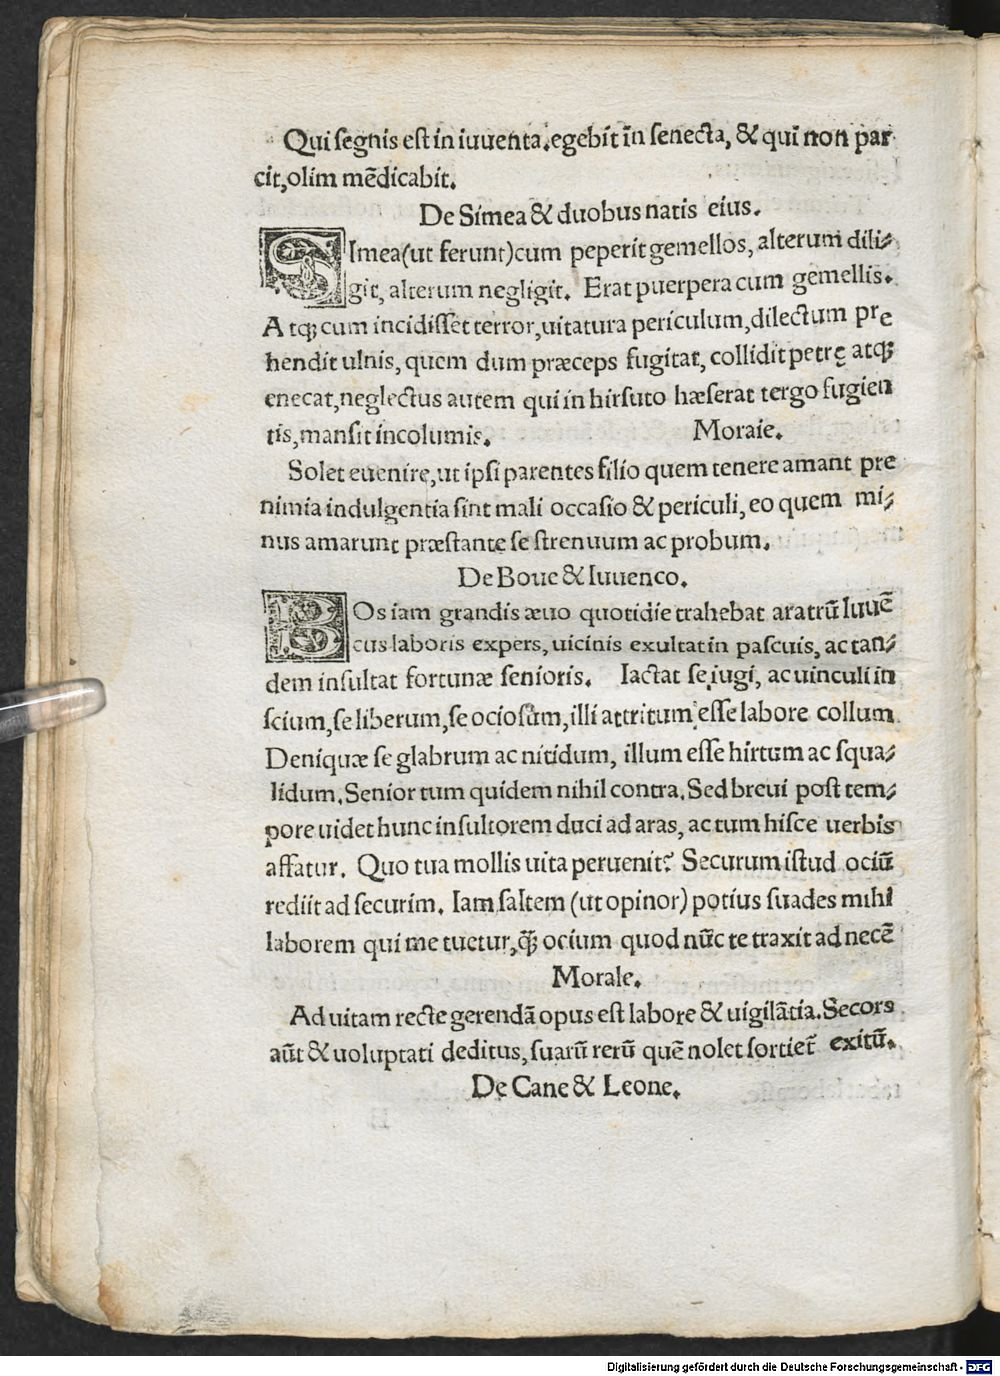 Qui ſegnis eſt in iuuenta.egebit in ſenecta, & qui non par
cit,olim mēdicabit.
De Simea & duobus natis eius.
SImea(ut ferunt)cum peperit gemellos, alterum dili⸗
git, alterum negligit. Erat puerpera cum gemellis.
Atqꝫ cum incidiſſet terror,uitatura periculum,dilectum pre
hendit ulnis, quem dum præceps fugitat, collidit petrę atqꝫ
enecat,neglectus autem qui in hirſuto hæſerat tergo fugien
tis,manſit incolumis. Moraie.
Solet euenire,ut ipſi parentes filio quem tenere amant pre
nimia indulgentia ſint mali occaſio & periculi, eo quem mi⸗
nus amarunt præſtante ſe ſtrenuum ac probum.
De Boue & Iuuenco.
BOs iam grandis æuo quotidie trahebat aratrū Iuuē
cus laboris expers, uicinis exultat in paſcuis, ac tan⸗
dem inſultat fortunæ ſenioris. Iactat ſe iugi, ac uinculi in
ſcium,ſe liberum,ſe ocioſum,illi attritum eſſe labore collum
Deniquæ ſe glabrum ac nitidum, illum eſſe hirtum ac ſqua⸗
lidum.Senior tum quidem nihil contra.Sed breui poſt tem⸗
pore uidet hunc inſultorem duci ad aras, ac tum hiſce uerbis
affatur. Quo tua mollis uita peruenit? Securum iſtud ociū
rediit ad ſecurim. Iam ſaltem (ut opinor) potius ſuades mihi
laborem qui me tuetur,ꝙ̄ ocium quod nūc te traxit ad necē
Morale.
Ad uitam recte gerendā opus eſt labore & uigilātia.Secors
aūt & uoluptati deditus, ſuarū rerū quē nolet ſortiet᷑ exitū.
De Cane & Leone.
Digitalisierung gefördert durch die Deutsche Forschungsgemeinschaft - DFG